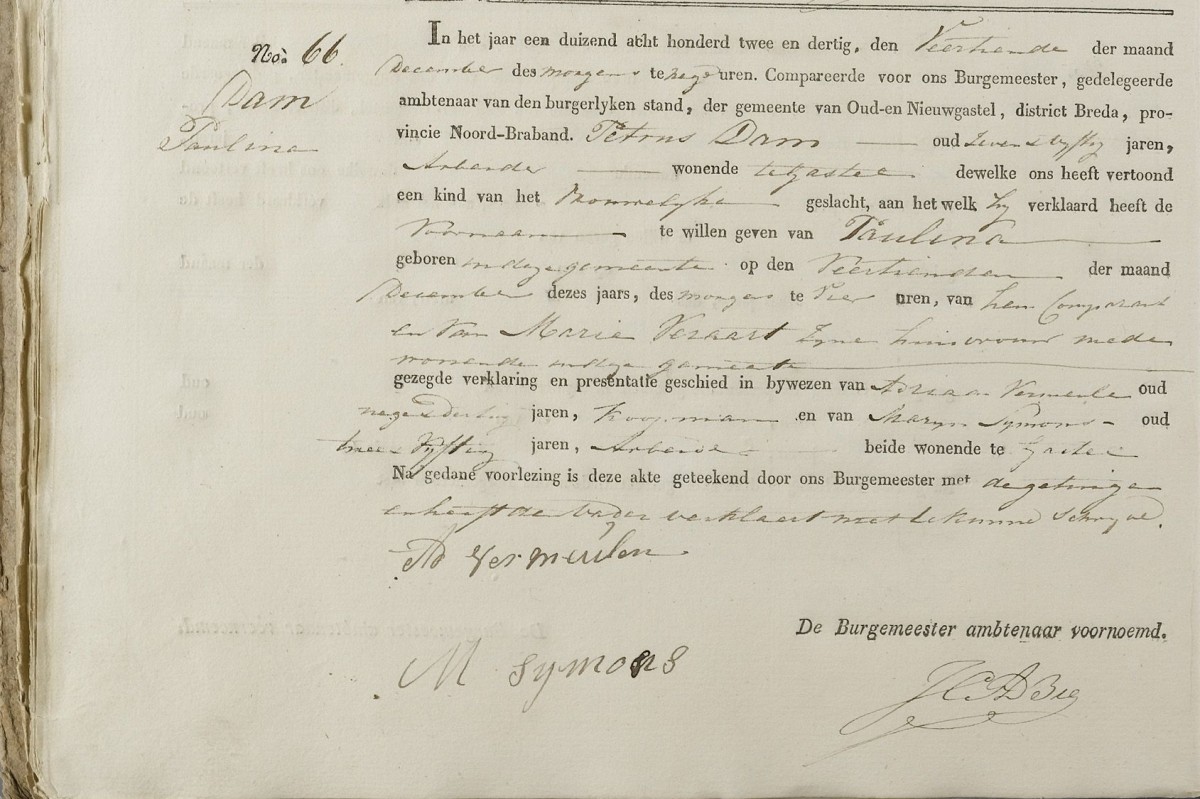 No. 66.
Dam
Paulina
In het jaar een duizend acht honderd twee en dertig, den Veertiende der maand
December des morgens te uren. Compareerde voor ons Burgemeester, gedelegeerde
ambtenaar van den burgerlyken stand, der gemeente van Oud-en Nieuwgastel, district Breda, pro-
vincie Noord-Braband. Petrus Dam oud jaren,
Arbeider wonende te Gastel dewelke ons heeft vertoond
een kind van het Vrouwelyke geslacht, aan het welk hy verklaard heeft de
Voornaam te willen geven van Paulina
geboren in deze gemeente op den Veertienden der maand
December dezes jaars, des morgens te Vier uren, van hem Comparant
en van Marie Veraart Zyne huisvrouw mede
wonende in deze gemeente
gezegde verklaring en presentatie geschied in bywezen van Adriaan Vermeulen oud
negen Dertig jaren, Koopman en van Maryn Symons oud
twee Vyftig jaren, Arbeider beide wonende te Gastel
Na gedane voorlezing is deze akte geteekend door ons Burgemeester met de getuigen
en heeft de Vader verklaert niet te kunne schryve.
Ad Vermeulen
M symons
De Burgemeester ambtenaar voornoemd.